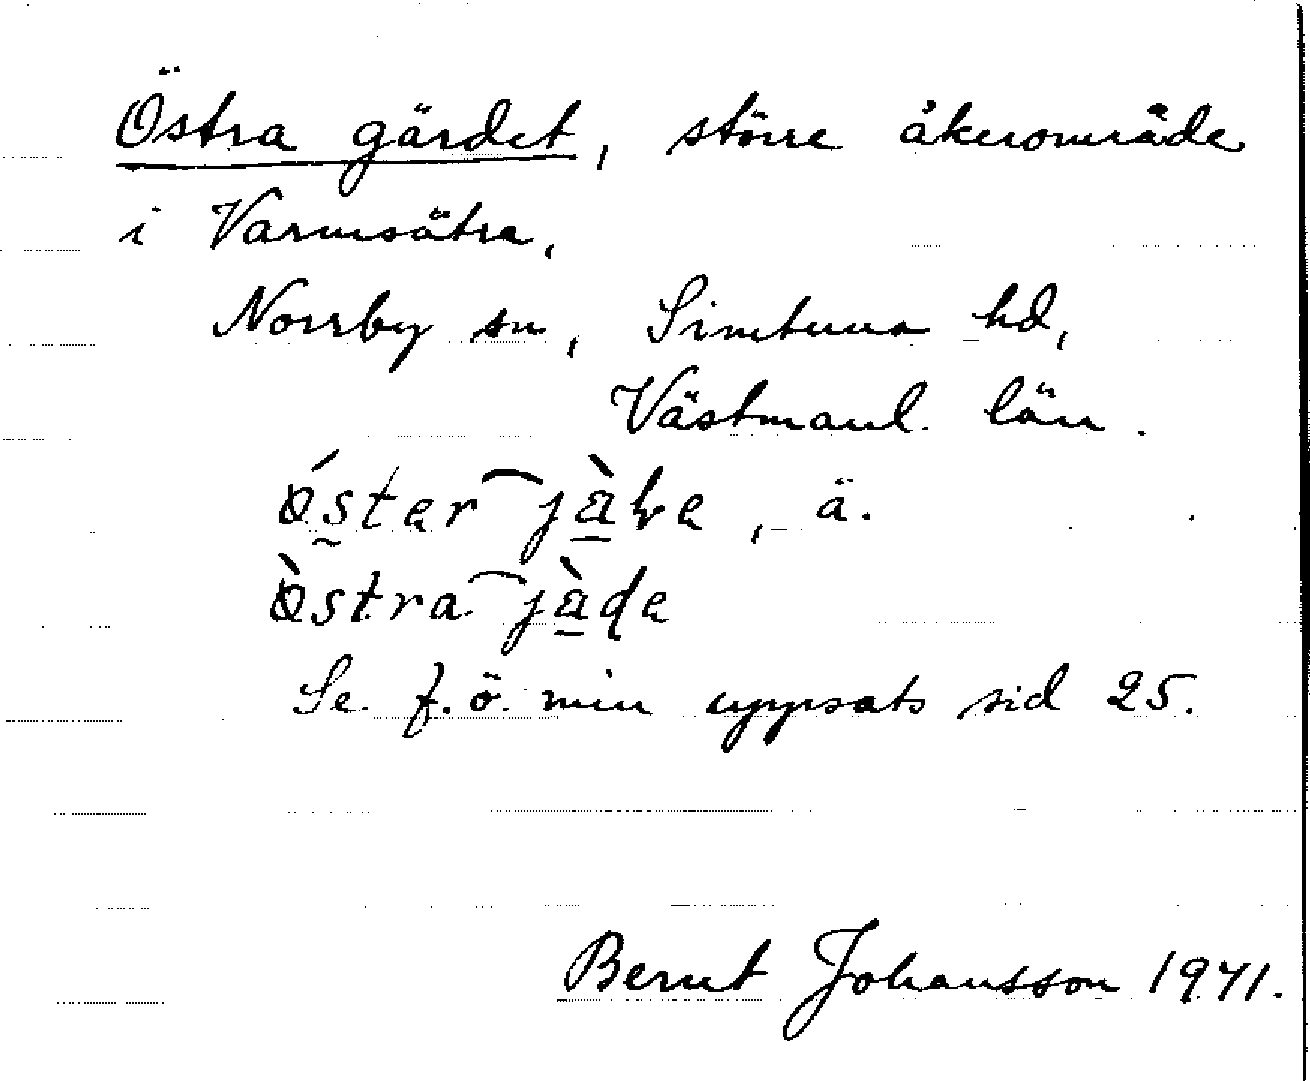 Östra gärdet, större åkerområde
i Varmsätra,
Norrby sn, Simtuna hd,
Västmanl. län.
ä.
Se f.ö. min uppsats sid 25.
Bernt Johansson 1941.